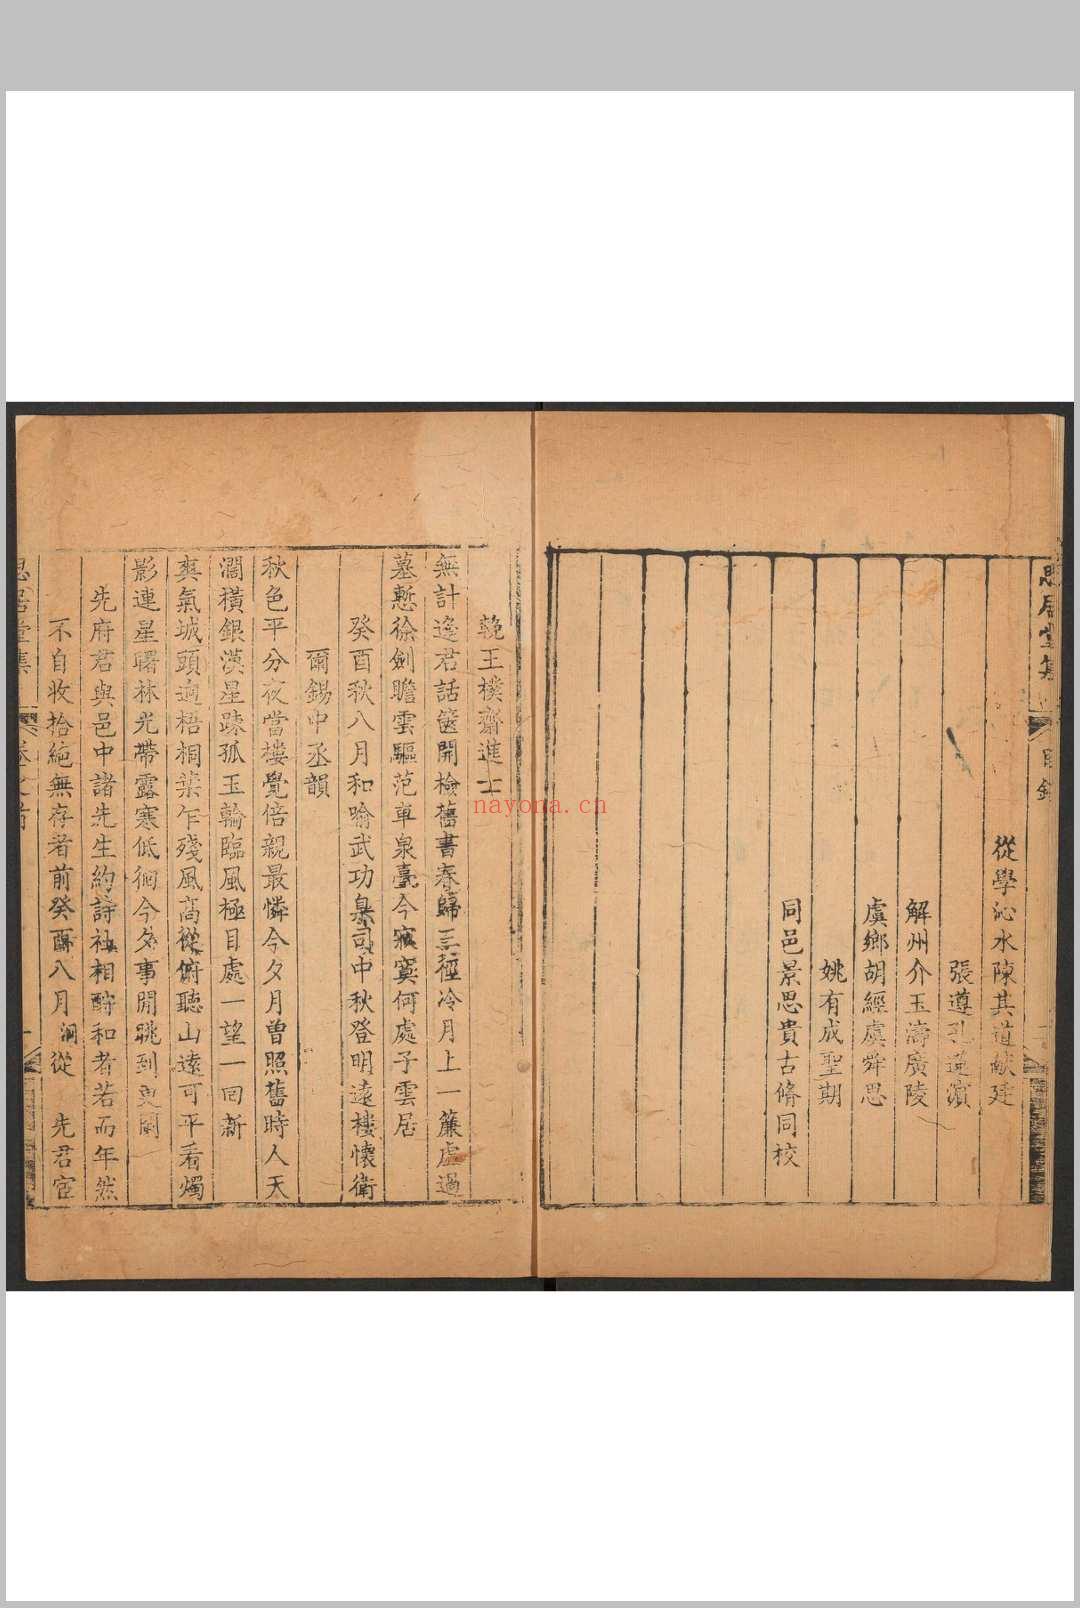 思居堂集
目錄
從學沁水陳其道猷廷
張遵孔邁濱
解州介玉濤廣陵
虞鄉胡經虞舜思
姚有成聖期
同邑景思貴古脩同校
輓王樸齋進士
無計邀君話篋開檢舊書春歸三徑冷月上一簾虛過
墓慙徐劍瞻雲驅范車泉臺今寂寞何處子雲居
癸酉秋八月和喻武功臬司中秋登明遠樓懷衛
爾錫中丞韻
秋色平分夜當樓覺倍親最憐今夕月曾照舊時人天
濶橫銀漢星踈孤玉輪臨風極目處一望一回新
爽氣城頭逈梧桐葉乍殘風高從俯聽山遠可平看燭
影連星曙林光帶露寒低徊今夕事閒眺到更闌
先府君與邑中諸先生約詩社相酧和者若而年然
不自收拾絶無存者前癸酉八月 澗從 先君宦
思居堂集
nayona.cn